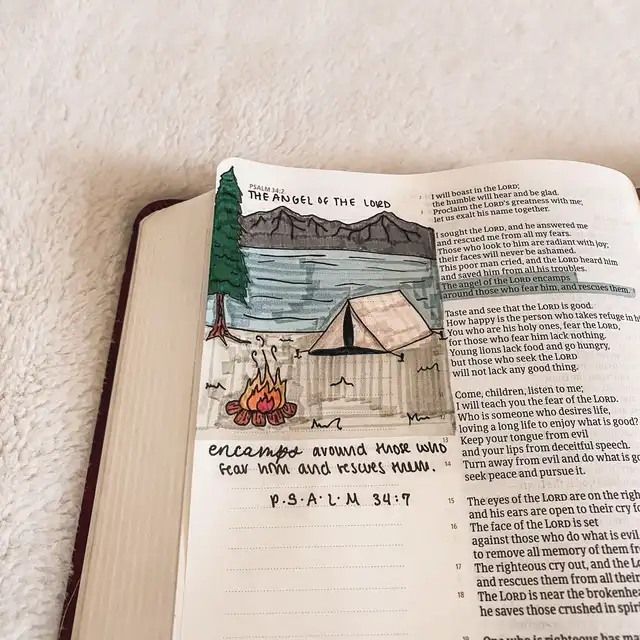 PSALM 34:2
THE ANGEL OF THE LORD
encamps around those who
fear him and rescues them.
P·S·A·L·M 34:7
13
14
2 I will boast in the LORD;
the humble will hear and be glad.
3 Proclaim the LORD's greatness with me;
let us exalt his name together.
I sought the LORD, and he answered me
and rescued me from all my fears.
Those who look to him are radiant with joy;
their faces will never be ashamed.
This poor man cried, and the LORD heard him
and saved him from all his troubles.
The angel of the LORD encamps
around those who fear him, and rescues them.
Taste and see that the LORD is good.
How happy is the person who takes refuge in
You who are his holy ones, fear the LORD,
for those who fear him lack nothing.
Young lions lack food and go hungry,
but those who seek the LORD
will not lack any good thing.
Come, children, listen to me;
I will teach you the fear of the LORD.
Who is someone who desires life,
loving a long life to enjoy what is good?
Keep your tongue from evil
and your lips from deceitful speech.
Turn away from evil and do what is
seek peace and pursue it.
15 The eyes of the LORD are on the
and his ears are open to their cry
16 The face of the LORD is set
against those who do what is evil
to remove all memory of them
17 The righteous cry out, and the
and rescues them from all their
18 The LORD is near the
he saves those crushed in